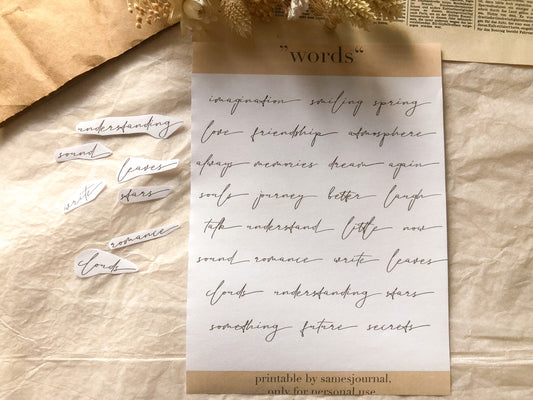 "words"
imagination smiling spring
love friendship atmosphere
always memories dream again
souls journey better laugh
talk understand little now
sound romance write leaves
clouds understanding stars
something future secrets
printable by samesjournal.
only for personal use
understanding
sound
leaves
write
stars
romance
clouds